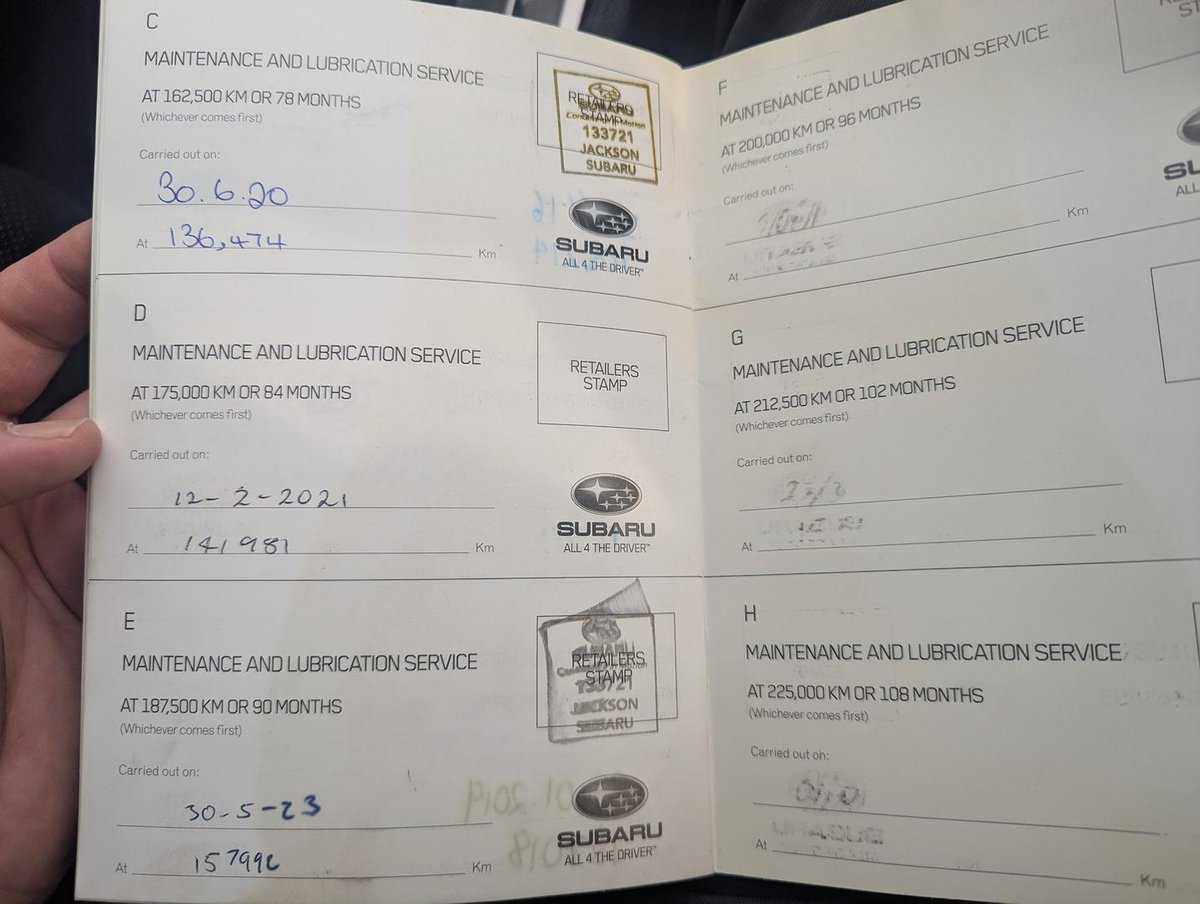 C
MAINTENANCE AND LUBRICATION SERVICE
AT 162,500 KM OR 78 MONTHS
(Whichever comes first)
Carried out on:
30.6.20
At 136,474 Km
RETAILERS
STAMP
133721
JACKSON
SUBARU
SUBARU
ALL 4 THE DRIVER™
D
MAINTENANCE AND LUBRICATION SERVICE
AT 175,000 KM OR 84 MONTHS
(Whichever comes first)
Carried out on:
12-2-2021
At 141981 Km
RETAILERS
STAMP
SUBARU
ALL 4 THE DRIVER™
E
MAINTENANCE AND LUBRICATION SERVICE
AT 187,500 KM OR 90 MONTHS
(Whichever comes first)
Carried out on:
30-5-23
At Km
RETAILERS
STAMP
133721
JACKSON
SUBARU
SUBARU
ALL 4 THE DRIVER™
F
MAINTENANCE AND LUBRICATION SERVICE
AT 200,000 KM OR 96 MONTHS
(Whichever comes first)
Carried out on:
At Km
G
MAINTENANCE AND LUBRICATION SERVICE
AT 212,500 KM OR 102 MONTHS
(Whichever comes first)
Carried out on:
At Km
H
MAINTENANCE AND LUBRICATION SERVICE
AT 225,000 KM OR 108 MONTHS
(Whichever comes first)
Carried out on:
At Km